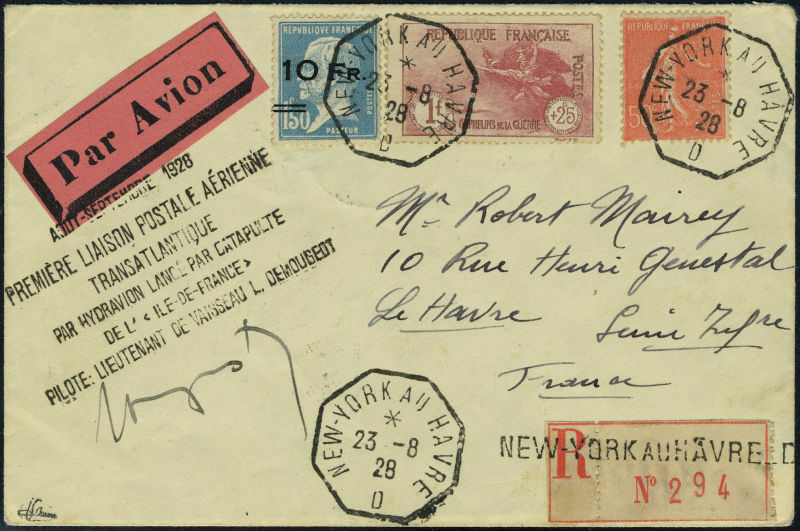 Par Avion
REPVBLIQUE FRANÇAISE
10 FR.
1F50
POSTES
PASTEUR
RÉPUBLIQUE FRANÇAISE
POSTES
1F
+25
ORPHELINS DE LA GUERRE
NEW-YORK AU HAVRE
*
23 -8
28
D
NEW-YORK AU HAVRE
*
23 -8
28
D
AOUT-SEPTEMBRE 1928
PREMIÈRE LIAISON POSTALE AÉRIENNE
TRANSATLANTIQUE
PAR HYDRAVION LANCÉ PAR CATAPULTE
DE L'« ILE-DE-FRANCE »
PILOTE: LIEUTENANT DE VAISSEAU L. DEMOUGEOT
Mr Robert Mairey
10 Rue Henri Genestal
Le Havre
Seine Infre
France
NEW-YORK AU HAVRE
*
23 -8
28
D
NEW-YORK AU HAVRE_D
R
No 294